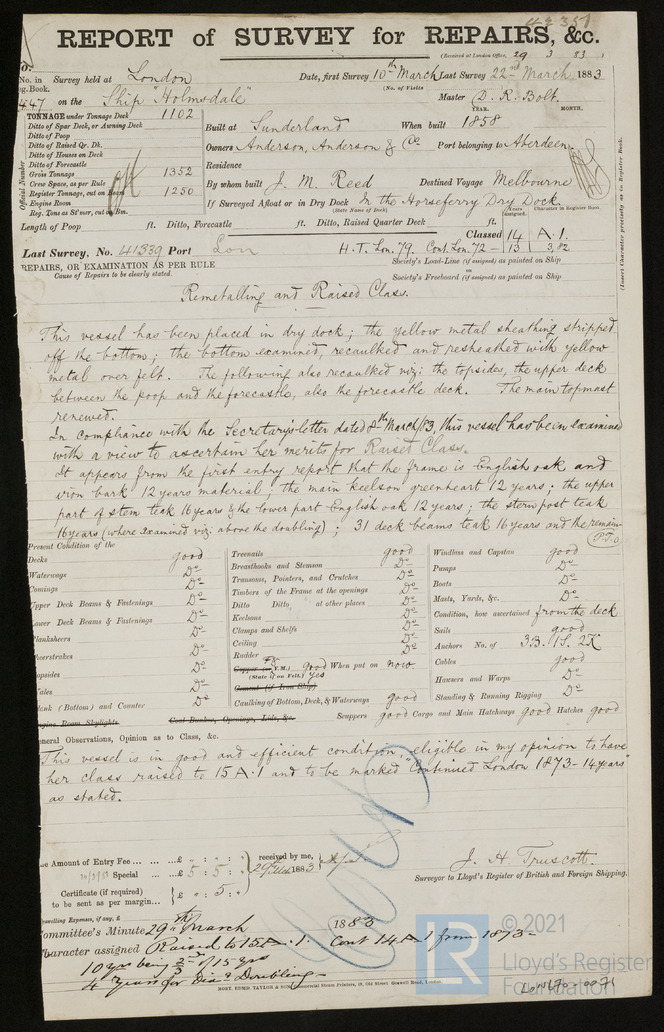 49351
REPORT of SURVEY for REPAIRS, &c.
(Received at London Office, 29 3 83
No. in Survey held at London Date, first Survey 10th March Last Survey 22nd March 1883
Reg. Book. (No. of Visits
447 on the Ship "Holmsdale" Master D. R. Bolt.
TONNAGE under Tonnage Deck 1102
Ditto of Spar Deck, or Awning Deck
Ditto of Poop
Ditto of Raised Qr. Dk.
Ditto of Houses on Deck
Ditto of Forecastle
Gross Tonnage 1352
Crew Space, as per Rule
Register Tonnage, cut on Beam 1250
Engine Room
Reg. Tons as St'mer, cut on Bm.
Official Number
YEAR. MONTH.
Built at Sunderland When built 1858
Owners Anderson, Anderson & Co Port belonging to Aberdeen
Residence
By whom built J. M. Reed Destined Voyage Melbourne
If Surveyed Afloat or in Dry Dock In the Horseferry Dry Dock.
(State Name of Dock)
Years assigned. Character in Register Book.
Length of Poop ft. Ditto, Forecastle ft. Ditto, Raised Quarter Deck ft.
Classed 14 A.1.
Last Survey, No. 41339 Port Lon H.T. Lon. 79. Cont. Lon. 72 - 13 3,82
REPAIRS, OR EXAMINATION AS PER RULE
Cause of Repairs to be clearly stated.
Society's Load-Line (if assigned) as painted on Ship
or
Society's Freeboard (if assigned) as painted on Ship
(Insert) Character precisely as in Register Book.
Remetalling and Raised Class.
This vessel has been placed in dry dock; the yellow metal sheathing stripped
off the bottom; the bottom examined, recaulked and resheathed with yellow
metal over felt. The following also recaulked viz: the topsides, the upper deck
between the poop and the forecastle, also the forecastle deck. The main topmast
renewed.
In compliance with the Secretary's letter dated 8th March/83, this vessel has been examined
with a view to ascertain her merits for Raised Class.
It appears from the first entry report that the frame is English oak and
iron bark 12 years material; the main keelson greenheart 12 years; the upper
part of stem teak 16 years & the lower part English oak 12 years; the stern post teak
16 years (where examined viz: above the doubling); 31 deck beams teak 16 years and the remain-
(P.T.O.)
Present Condition of the
Decks good
Waterways Do
Comings Do
Upper Deck Beams & Fastenings Do
Lower Deck Beams & Fastenings Do
Planksheers Do
Sheerstrakes Do
Topsides Do
Wales Do
Plank (Bottom) and Counter Do
Engine Room Skylights
Treenails good
Breasthooks and Stemson Do
Transoms, Pointers, and Crutches Do
Timbers of the Frame at the openings Do
Ditto Ditto at other places Do
Keelsons Do
Clamps and Shelfs Do
Ceiling Do
Rudder Do
Copper (or Y.M.) good When put on now.
(State if on Felt.) Yes
Cement (if Iron Ship)
Caulking of Bottom, Deck, & Waterways good
Coal Bunker, Openings, Lids, &c.
Windlass and Capstan good
Pumps Do
Boats Do
Masts, Yards, &c. Do
Condition, how ascertained from the deck
Sails good
Anchors No. of 3B. 1S. 2K
Cables good
Hawsers and Warps Do
Standing & Running Rigging Do
Scuppers good Cargo and Main Hatchways good Hatches good
General Observations, Opinion as to Class, &c.
This vessel is in good and efficient condition, eligible in my opinion to have
her class raised to 15 A.1 and to be marked "Continued London 1873 - 14 years"
as stated.
The Amount of Entry Fee ... ... ...£ " : " :
Special ... ...£ 5 : 5 :
Certificate (if required)
to be sent as per margin... £ " : 5 :
received by me,
1883
J. H. Truscott.
Surveyor to Lloyd's Register of British and Foreign Shipping.
Travelling Expenses, if any, £
Committee's Minute 29th March 1883
Character assigned Raised to 15 A.1. Cont 14 A 1 from 1873 -
10 yrs being 2/3 of 15 yrs
4 years for Dia & Doubling -
© 2021
LR
Lloyd's Register
Foundation